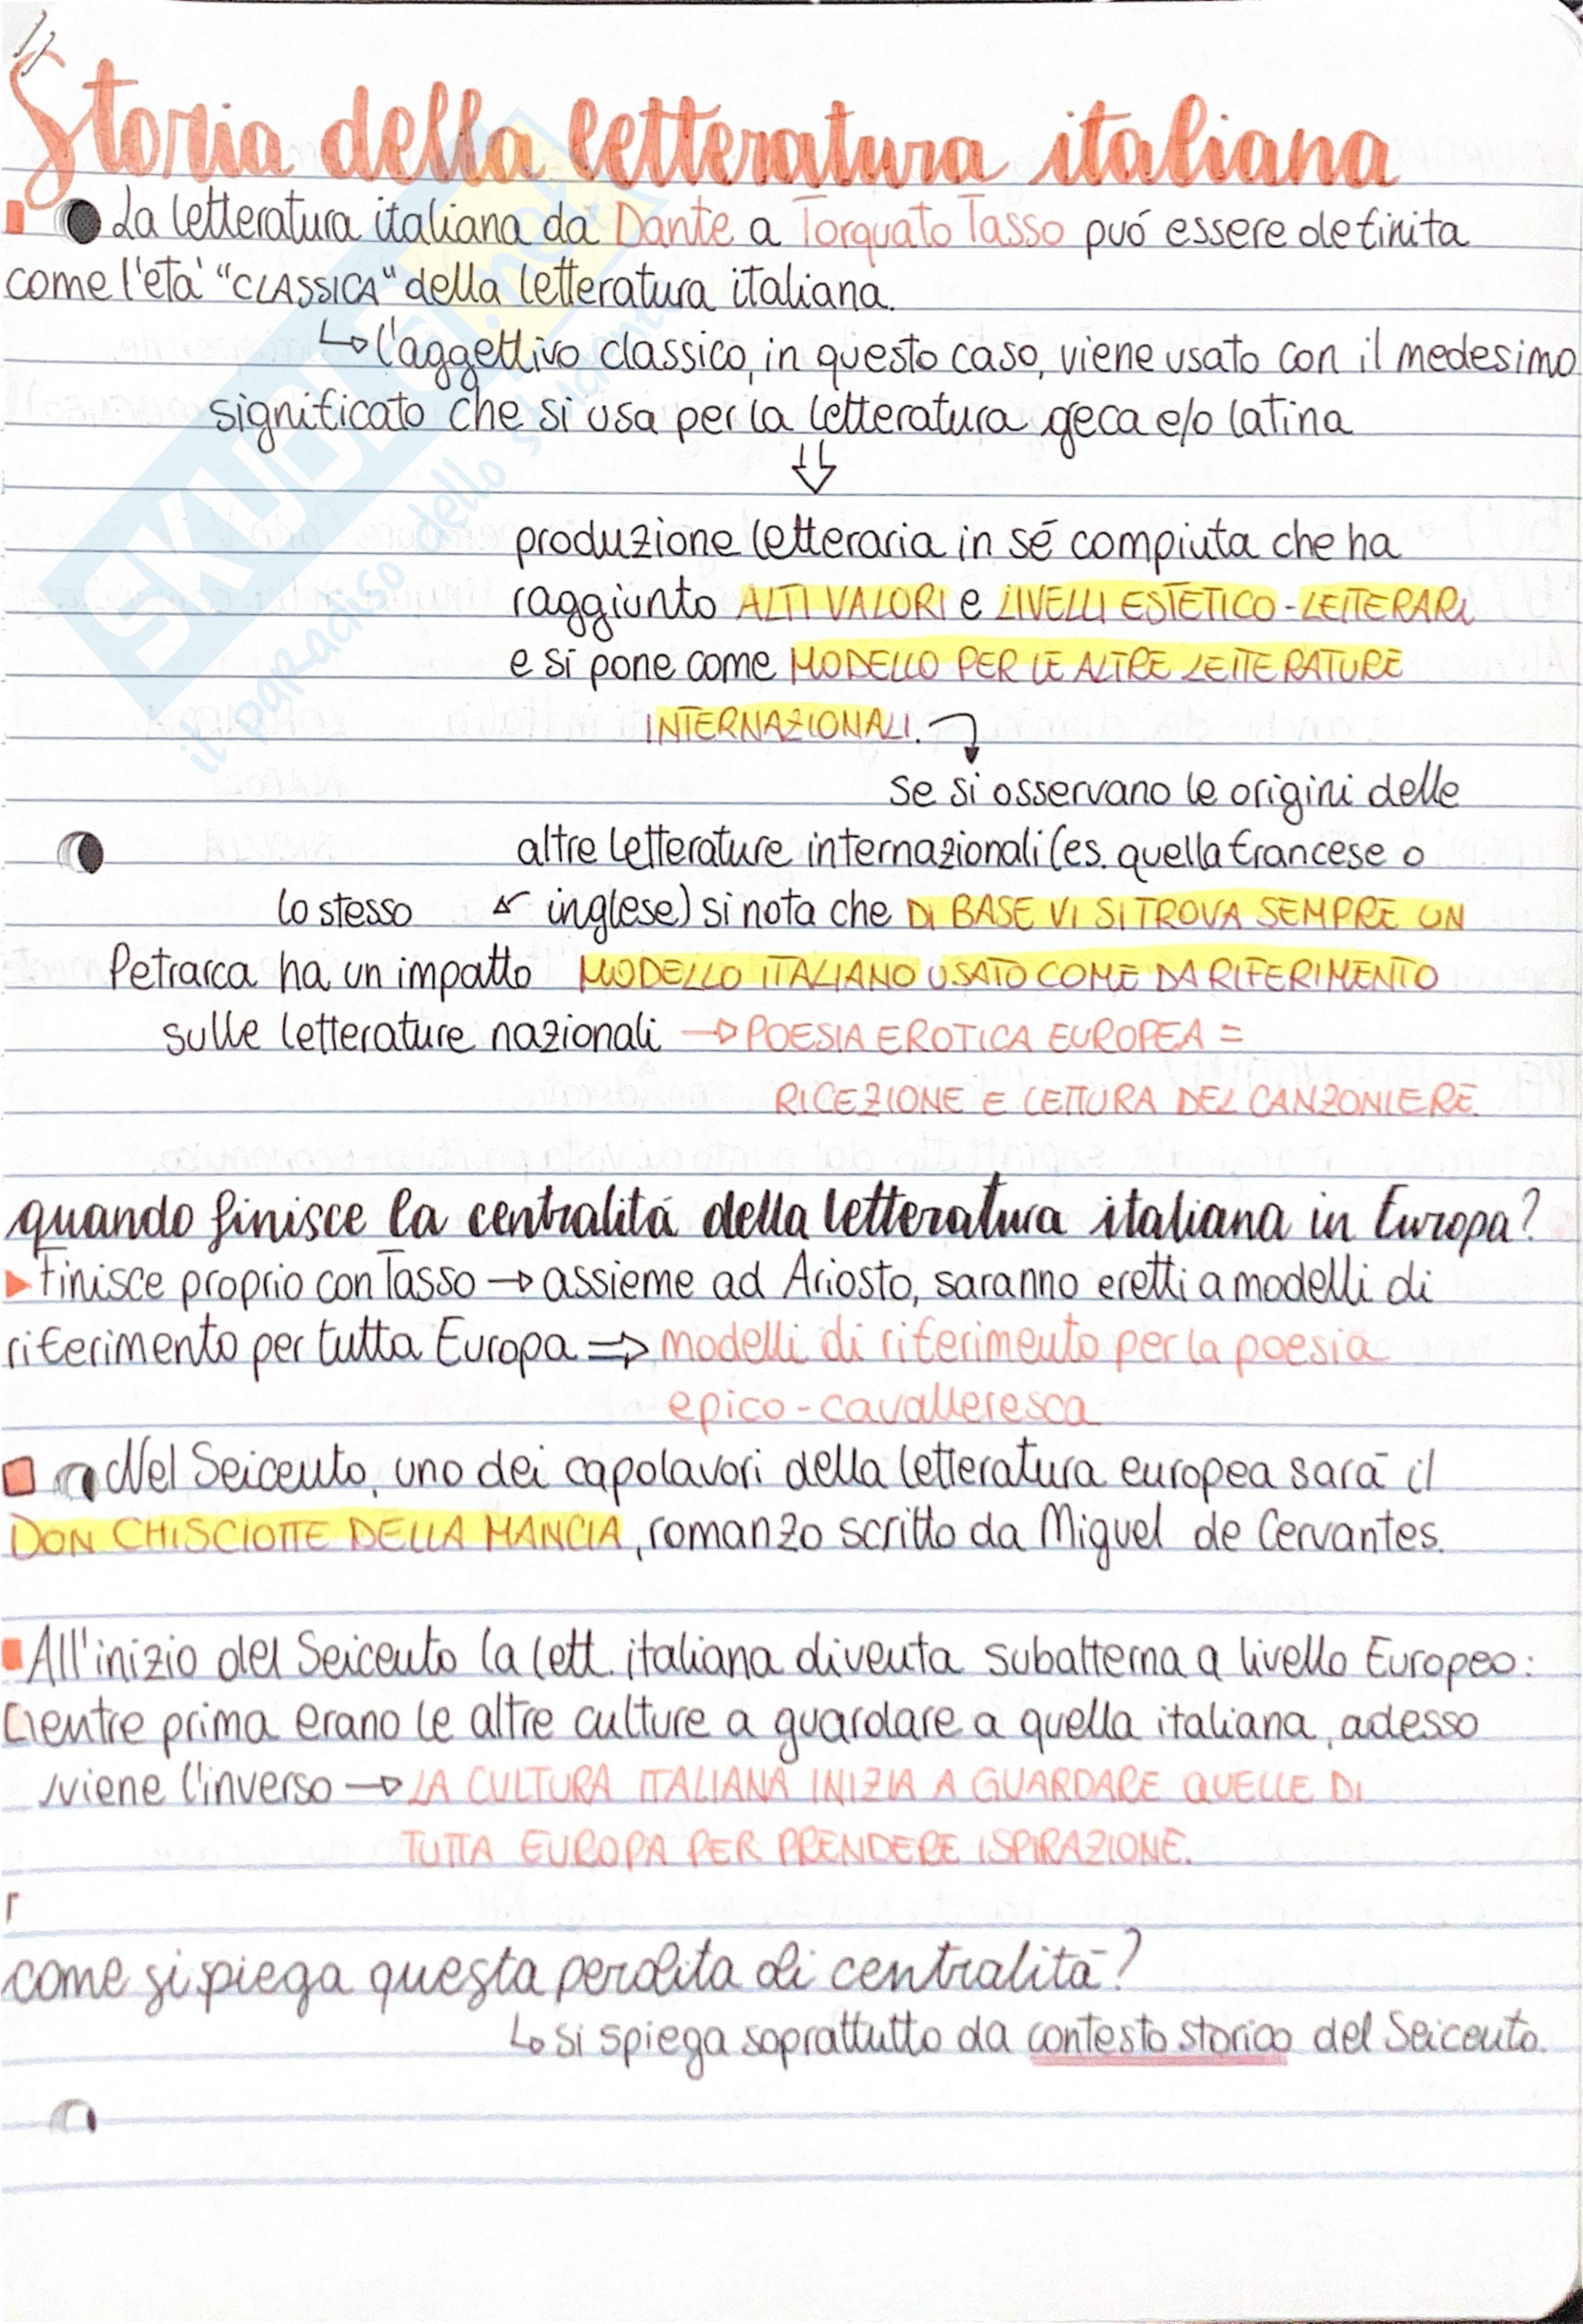 Storia della letteratura italiana
La letteratura italiana da Dante a Torquato Tasso puó essere definita
come l'età "CLASSICA" della letteratura italiana.
↳ l'aggettivo classico, in questo caso, viene usato con il medesimo
significato che si usa per la letteratura geca e/o latina
⇓
produzione letteraria in sé compiuta che ha
raggiunto ALTI VALORI e LIVELLI ESTETICO-LETTERARI
e si pone come MODELLO PER LE ALTRE LETTERATURE
INTERNAZIONALI.
se si osservano le origini delle
altre letterature internazionali (es. quella francese o
inglese) si nota che DI BASE VI SI TROVA SEMPRE UN
MODELLO ITALIANO USATO COME DA RIFERIMENTO
lo stesso
Petrarca ha un impatto
sulle letterature nazionali → POESIA EROTICA EUROPEA =
RICEZIONE E LETTURA DEL CANZONIERE
quando finisce la centralitá della letteratura italiana in Europa?
Finisce proprio con Tasso → assieme ad Ariosto, saranno eretti a modelli di
riferimento per tutta Europa ⇒ modelli di riferimento per la poesia
epico-cavalleresca
Nel Seicento, uno dei capolavori della letteratura europea sará il
DON CHISCIOTTE DELLA MANCIA, romanzo scritto da Miguel de Cervantes.
All'inizio del Seicento la lett. italiana diventa subalterna a livello Europeo:
mentre prima erano le altre culture a guardare a quella italiana, adesso
avviene l'inverso → LA CULTURA ITALIANA INIZIA A GUARDARE QUELLE DI
TUTTA EUROPA PER PRENDERE ISPIRAZIONE.
come si spiega questa perdita di centralitá?
↳ si spiega soprattutto da contesto storico del Seicento.
SKUOLA.net
il paradiso dello studente